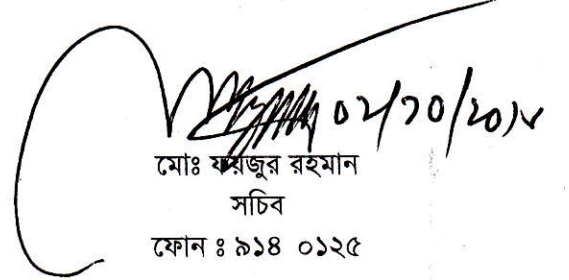 ০২/১০/২০১৮
মোঃ ফয়জুর রহমান
সচিব
ফোন ঃ ৯১৪ ০১২৫